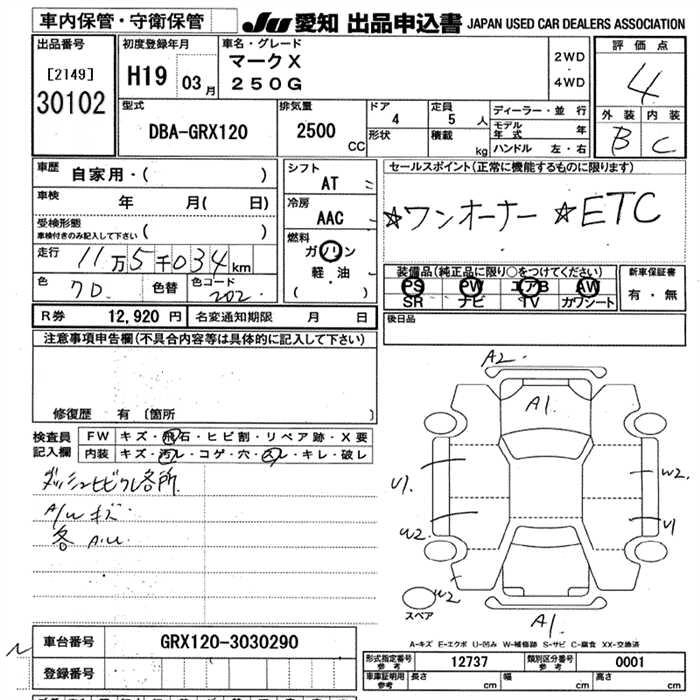 車内保管・守衛保管
JU 愛知 出品申込書 JAPAN USED CAR DEALERS ASSOCIATION
出品番号
[2149]
30102
初度登録年月
H19 03月
車名・グレード
マークX
250G
2WD
4WD
評価点
4
外装 内装
B C
型式
DBA-GRX120
排気量
2500 CC
ドア
4
形状
定員
5 人
積載
kg
ディーラー・並行
モデル年式 年
ハンドル 左・右
車歴
自家用・( )
車検
年 月( 日)
受検形態
車検付きのみ記入して下さい ( )
走行
11万5千034km
色
クロ 色替 色コード 202
シフト
AT
冷房
AAC
燃料
ガソリン
軽・油
( )
セールスポイント(正常に機能するものに限ります)
☆ワンオーナー ☆ETC
装備品(純正品に限り○をつけてください)
PS PW エアB AW
SR ナビ TV カワシート
新車保証書
有・無
後日品
R券 12,920円 名変通知期限 月 日
注意事項申告欄(不具合内容等は具体的に記入して下さい)
修復歴 有 〔箇所 〕
検査員記入欄
FW キズ・飛石・ヒビ割・リペア跡・X要
内装 キズ・汚レ・コゲ・穴・スレ・キレ・破レ
ダッシュヒビワレ各所
A/W キズ
各 A.U.
A2
A1
U1
W2
W2
U1
W2
スペア
A1
A-キズ E-エクボ U-凹み W-補修跡 S-サビ C-腐食 XX-交換済
車台番号 GRX120-3030290
登録番号
形式指定番号 参考 12737 類別区分番号 参考 0001
車庫証明用 参考 長さ cm 幅 cm 高さ cm